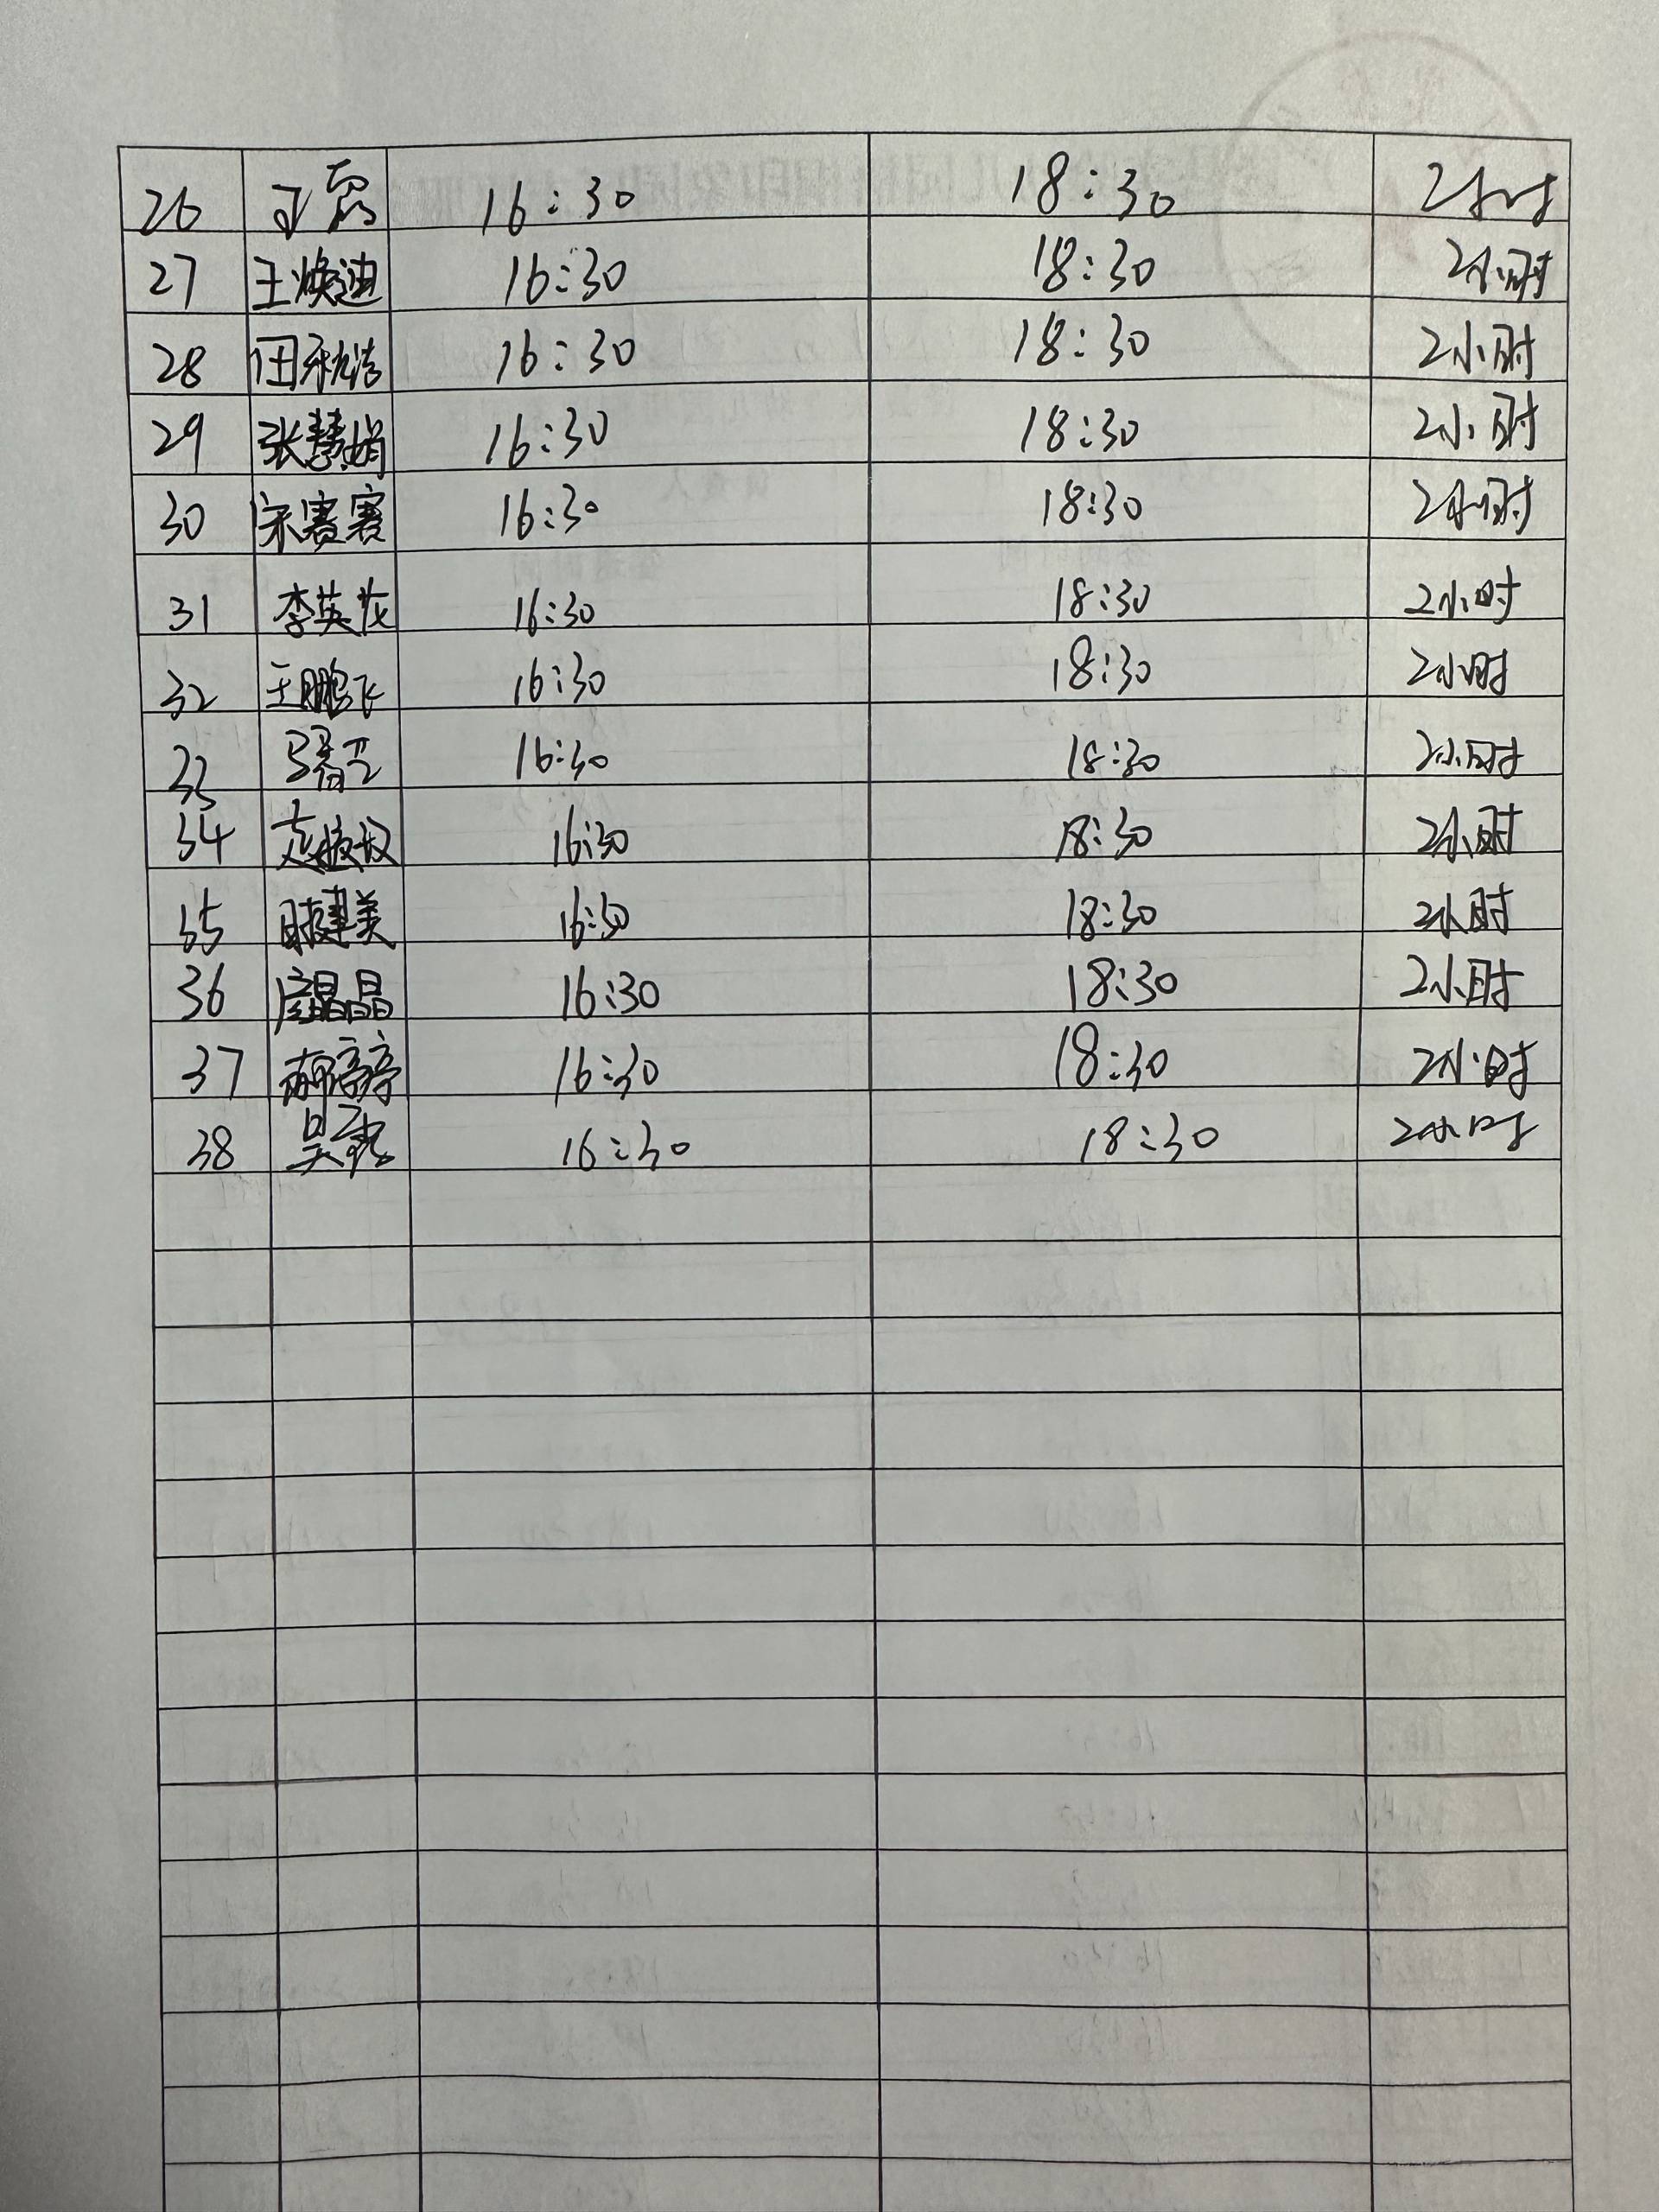 26 16:30 18:30 2小时
27 王焕迪 16:30 18:30 2小时
28 田秋洁 16:30 18:30 2小时
29 张慧娟 16:30 18:30 2小时
30 宋赛赛 16:30 18:30 2小时
31 李英 16:30 18:30 2小时
32 王鹏飞 16:30 18:30 2小时
33 16:30 18:30 2小时
34 16:30 18:30 2小时
35 建美 16:30 18:30 2小时
36 晶晶 16:30 18:30 2小时
37 婷 16:30 18:30 2小时
38 吴 16:30 18:30 2小时